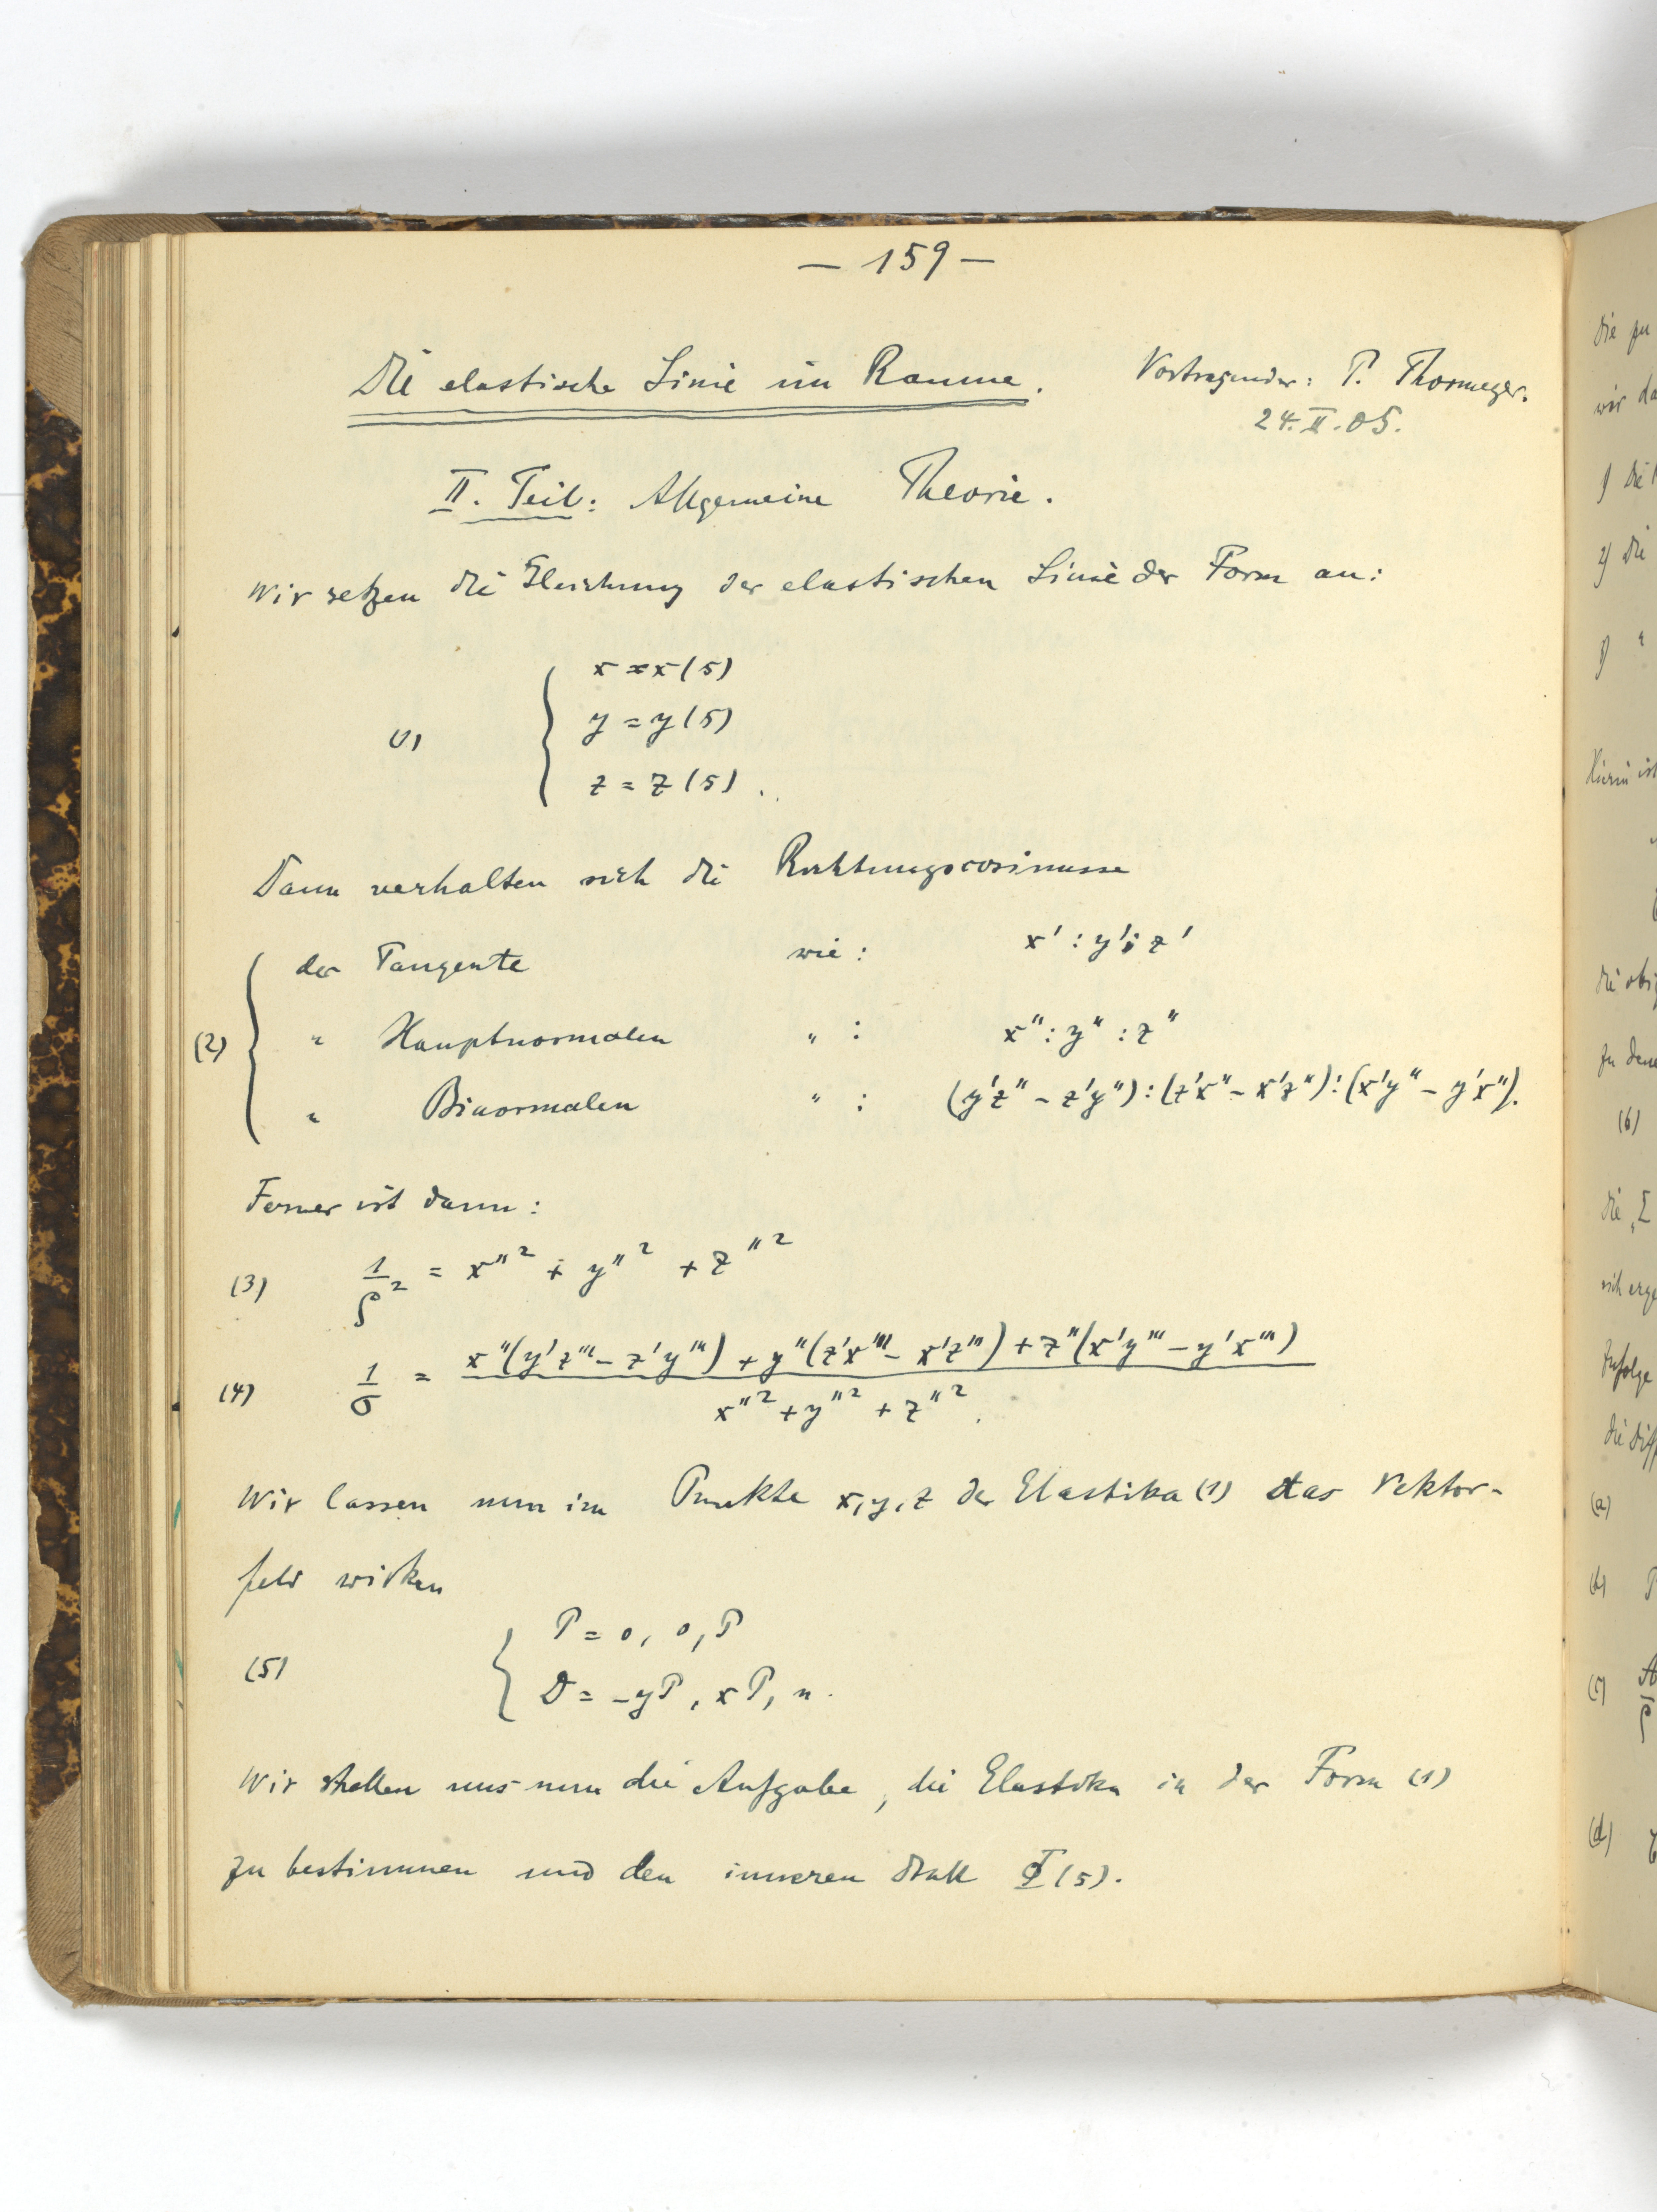 — 159 —
Die elastische Linie im Raume. Vortragender: P. Thormeyer.
24.II.05.
II. Teil: Allgemeine Theorie.
Wir setzen die Gleichung der elastischen Linie der Form an:
x = x(s)
(1) y = y(s)
z = z(s).
Dann verhalten sich die Richtungscosinusse
der Tangente wie: x' : y' : z'
(2) " Hauptnormalen " : x'' : y'' : z''
" Binormalen " : (y'z'' - z'y'') : (z'x'' - x'z'') : (x'y'' - y'x'').
Ferner ist dann:
(3) 1/ρ² = x''² + y''² + z''²
(4) 1/σ = x''(y'z''' - z'y''') + y''(z'x''' - x'z''') + z''(x'y''' - y'x''')
x''² + y''² + z''².
Wir lassen nun im Punkte x, y, z der Elastika (1) das Vektor-
feld wirken
P = 0, 0, P
(5)
D = -yP, xP, n.
Wir stellen uns nun die Aufgabe, die Elastika in der Form (1)
zu bestimmen und den inneren Drall (s).
die zu
wir da
1) die
2) die
Hierin ist
die obi
zu den
(6)
die
sich erge
Zufolge
die Diff
(a)
(b)
(c)
(d)